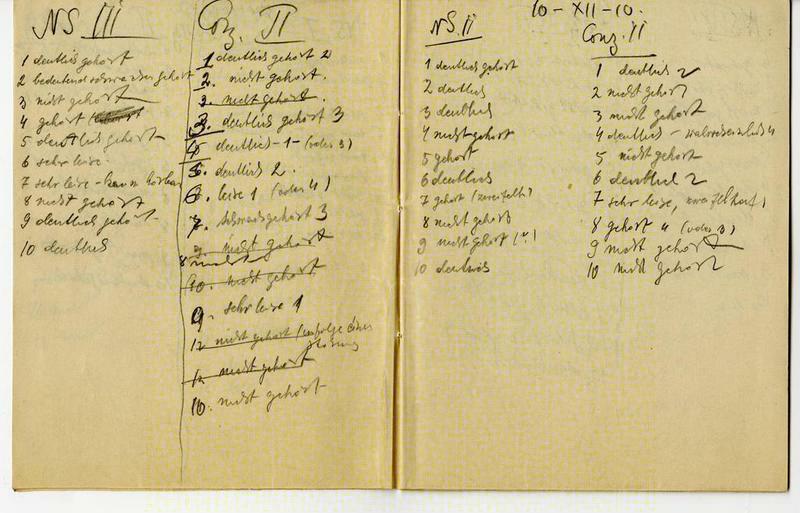 NS III
1 deutlich gehört
2 bedeutend schwächer gehört
3 nicht gehört
4 gehört
5 deutlich gehört
6 sehr leise
7 sehr leise - kaum hörbar
8 nicht gehört
9 deutlich gehört
10 deutlich
Conz. II
1 deutlich gehört 2
2. nicht gehört.
2. nicht gehört.
3. deutlich gehört 3
4 deutlich - 1 - (oder 3)
5. deutlich 2.
6. leise 1 (oder 4)
7. schwach gehört 3
9. nicht gehört
8 nicht
10. nicht gehört
9. sehr leise 1
12 nicht gehört (infolge einer
Störung
12 nicht gehört
10. nicht gehört
10-XII-10.
NS II
1 deutlich gehört
2 deutlich
3 deutlich
4 nicht gehört
5 gehört
6 deutlich
7 gehört (zweifelh)
8 nicht gehört
9 nicht gehört
10 deutlich
Conz. II
1 deutlich 2
2 nicht gehört
3 nicht gehört
4 deutlich - wahrscheinlich 4
5 nicht gehört
6 deutlich 2
7 sehr leise, zweifelhaft)
8 gehört 4 (oder 3)
9 nicht gehört
10 nicht gehört